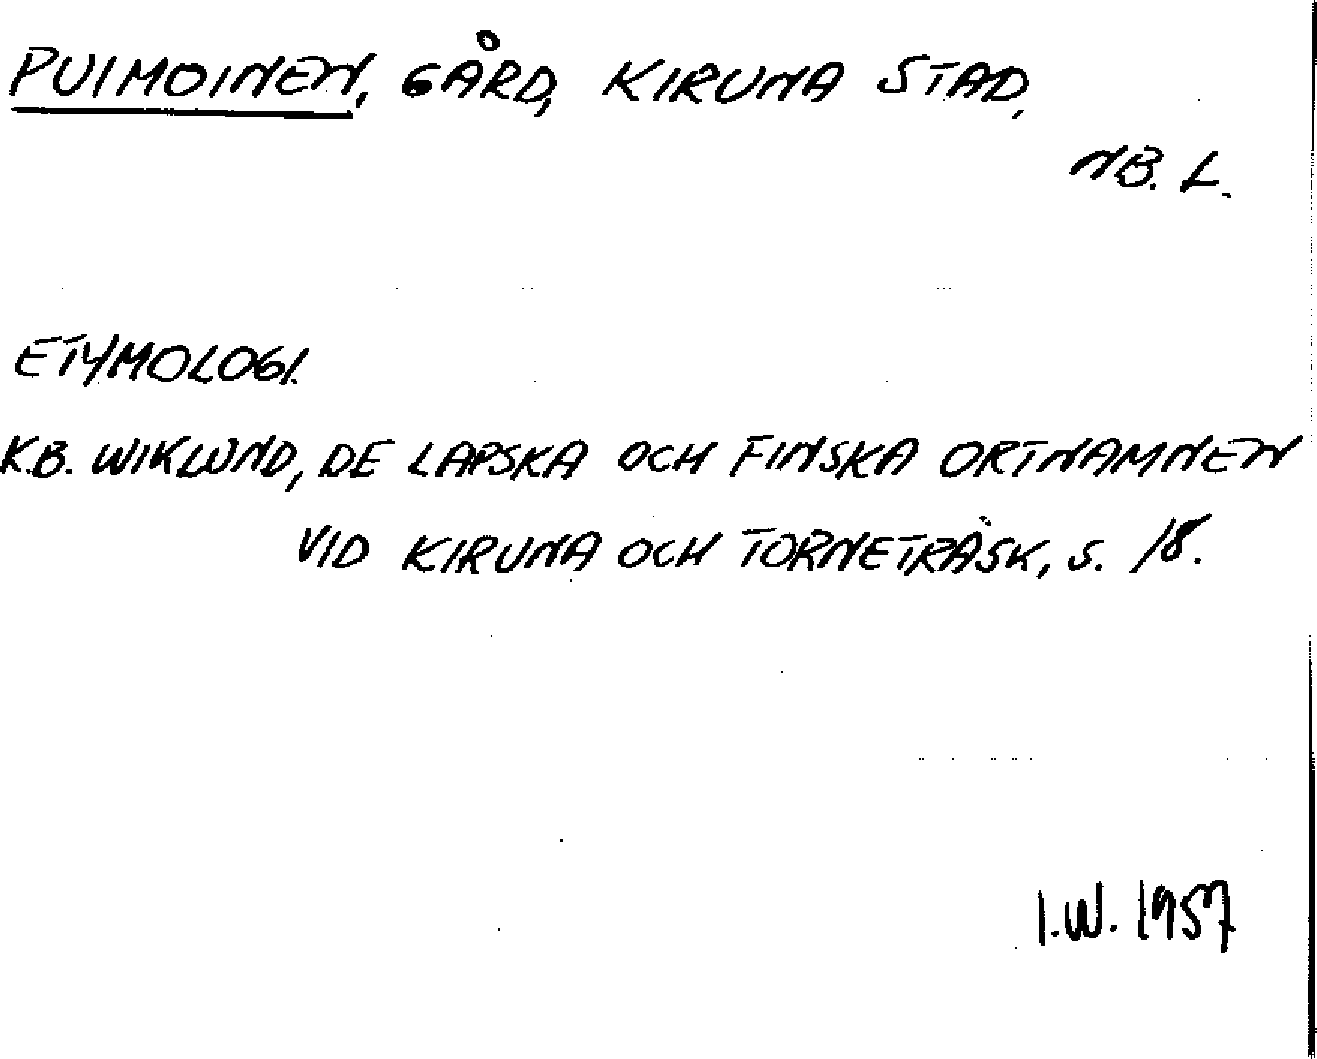 PUIMOINEN, GÅRD, KIRUNA STAD,
NB. L.
ETYMOLOGI.
K.B. WIKLUND, DE LAPSKA OCH FINSKA ORTNAMNEN
VID KIRUNA OCH TORNETRÄSK, S. 18.
I.W. 1957